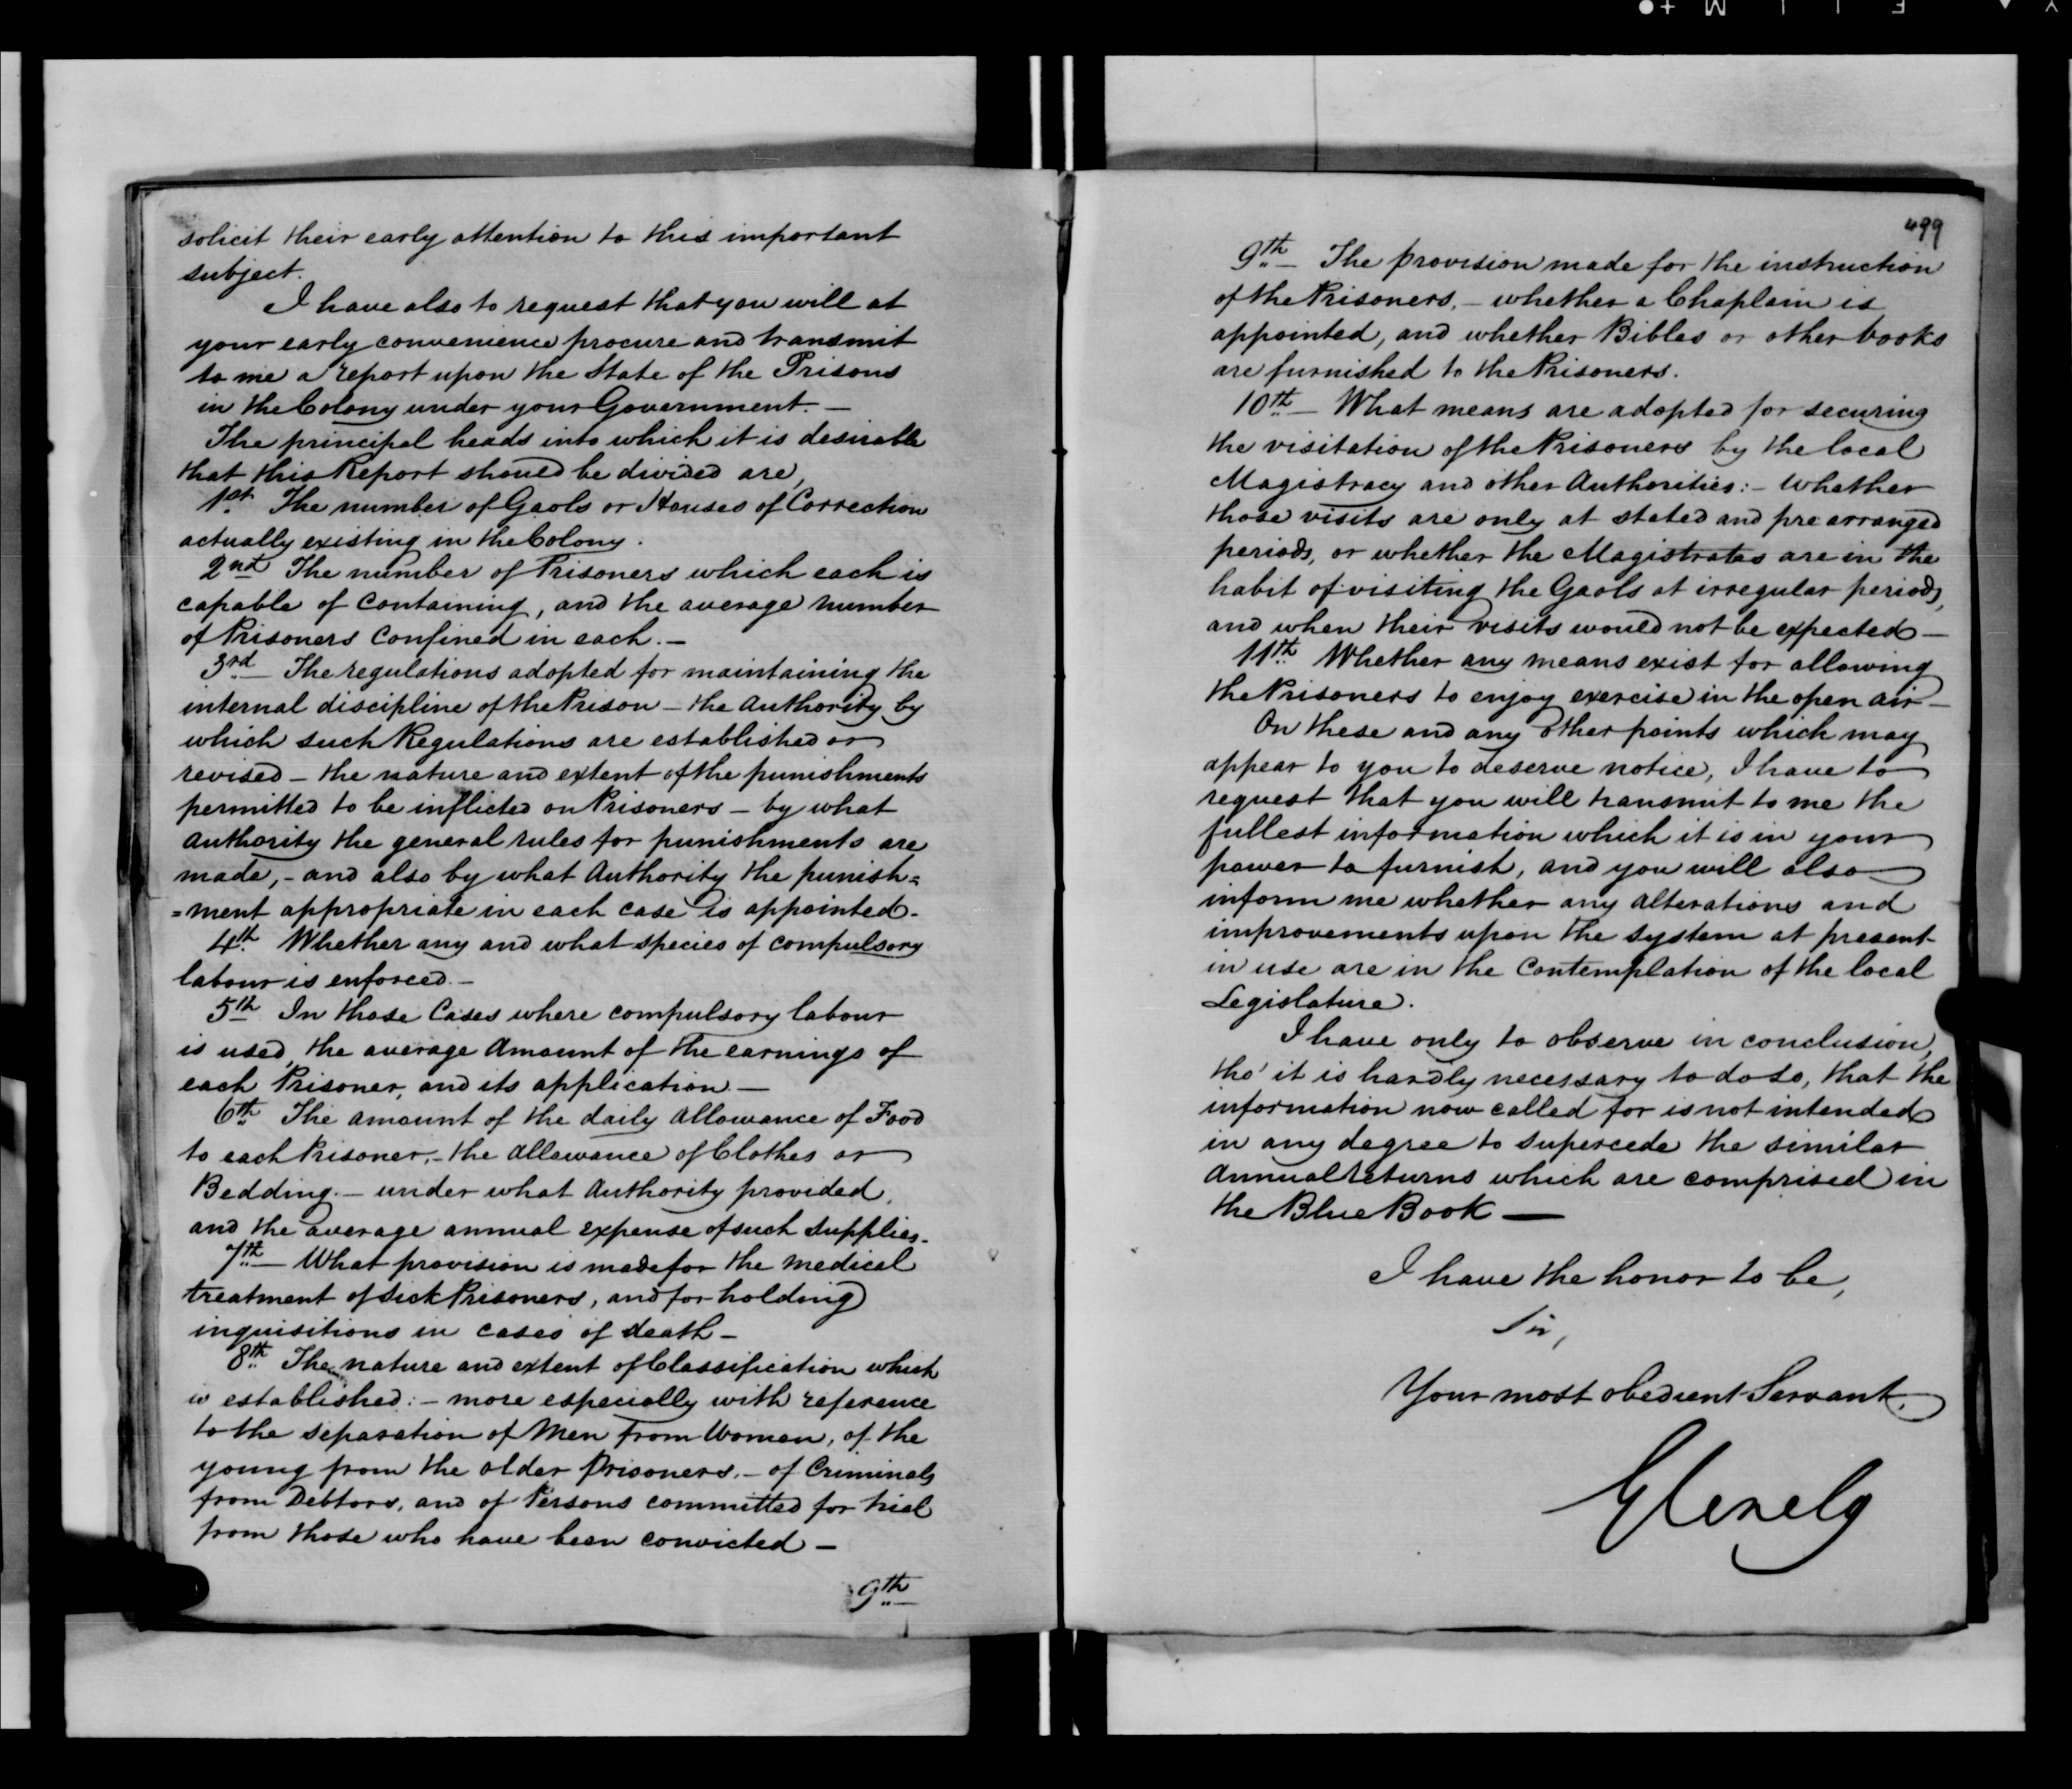 solicit their early attention to this important
subject.
I have also to request that you will at
your early convenience procure and transmit
to me a report upon the State of the Prisons
in the Colony under your Government. —
The principal heads into which it is desirable
that this Report should be divided are,
1st. The number of Gaols or Houses of Correction
actually existing in the Colony.
2nd The number of Prisoners which each is
capable of containing, and the average number
of Prisoners confined in each. —
3rd — The regulations adopted for maintaining the
internal discipline of the Prison — the Authority by
which such Regulations are established or
revised — the nature and extent of the punishments
permitted to be inflicted on Prisoners — by what
Authority the general rules for punishments are
made, — and also by what Authority the punish=
=ment appropriate in each case is appointed.
4th. Whether any and what species of compulsory
labour is enforced. —
5th In those Cases where compulsory labour
is used, the average Amount of the earnings of
each Prisoner, and its application. —
6th. The amount of the daily allowance of Food
to each Prisoner, — the allowance of Clothes or
Bedding. — under what Authority provided,
and the average annual expense of such supplies.
7th. — What provision is made for the medical
treatment of sick Prisoners, and for holding
inquisitions in cases of death —
8th. The nature and extent of Classification which
is established: — more especially with reference
to the separation of Men from Women, of the
young from the older Prisoners, — of Criminals
from Debtors, and of Persons committed for trial
from those who have been convicted —
9th.
499
9th. — The provision made for the instruction
of the Prisoners, — whether a Chaplain is
appointed, and whether Bibles or other books
are furnished to the Prisoners.
10th. — What means are adopted for securing
the visitation of the Prisoners by the local
Magistracy and other Authorities: — whether
those visits are only at stated and pre arranged
periods, or whether the Magistrates are in the
habit of visiting the Gaols at irregular periods,
and when their visits would not be expected —
11th. Whether any means exist for allowing
the Prisoners to enjoy exercise in the open air —
On these and any other points which may
appear to you to deserve notice, I have to
request that you will transmit to me the
fullest information which it is in your
power to furnish, and you will also
inform me whether any alterations and
improvements upon the system at present
in use are in the Contemplation of the local
Legislature.
I have only to observe in conclusion,
tho' it is hardly necessary to do so, that the
information now called for is not intended
in any degree to supercede the similar
Annual returns which are comprised in
the Blue Book —
I have the honor to be,
Sir,
Your most obedient Servant,
Glenelg